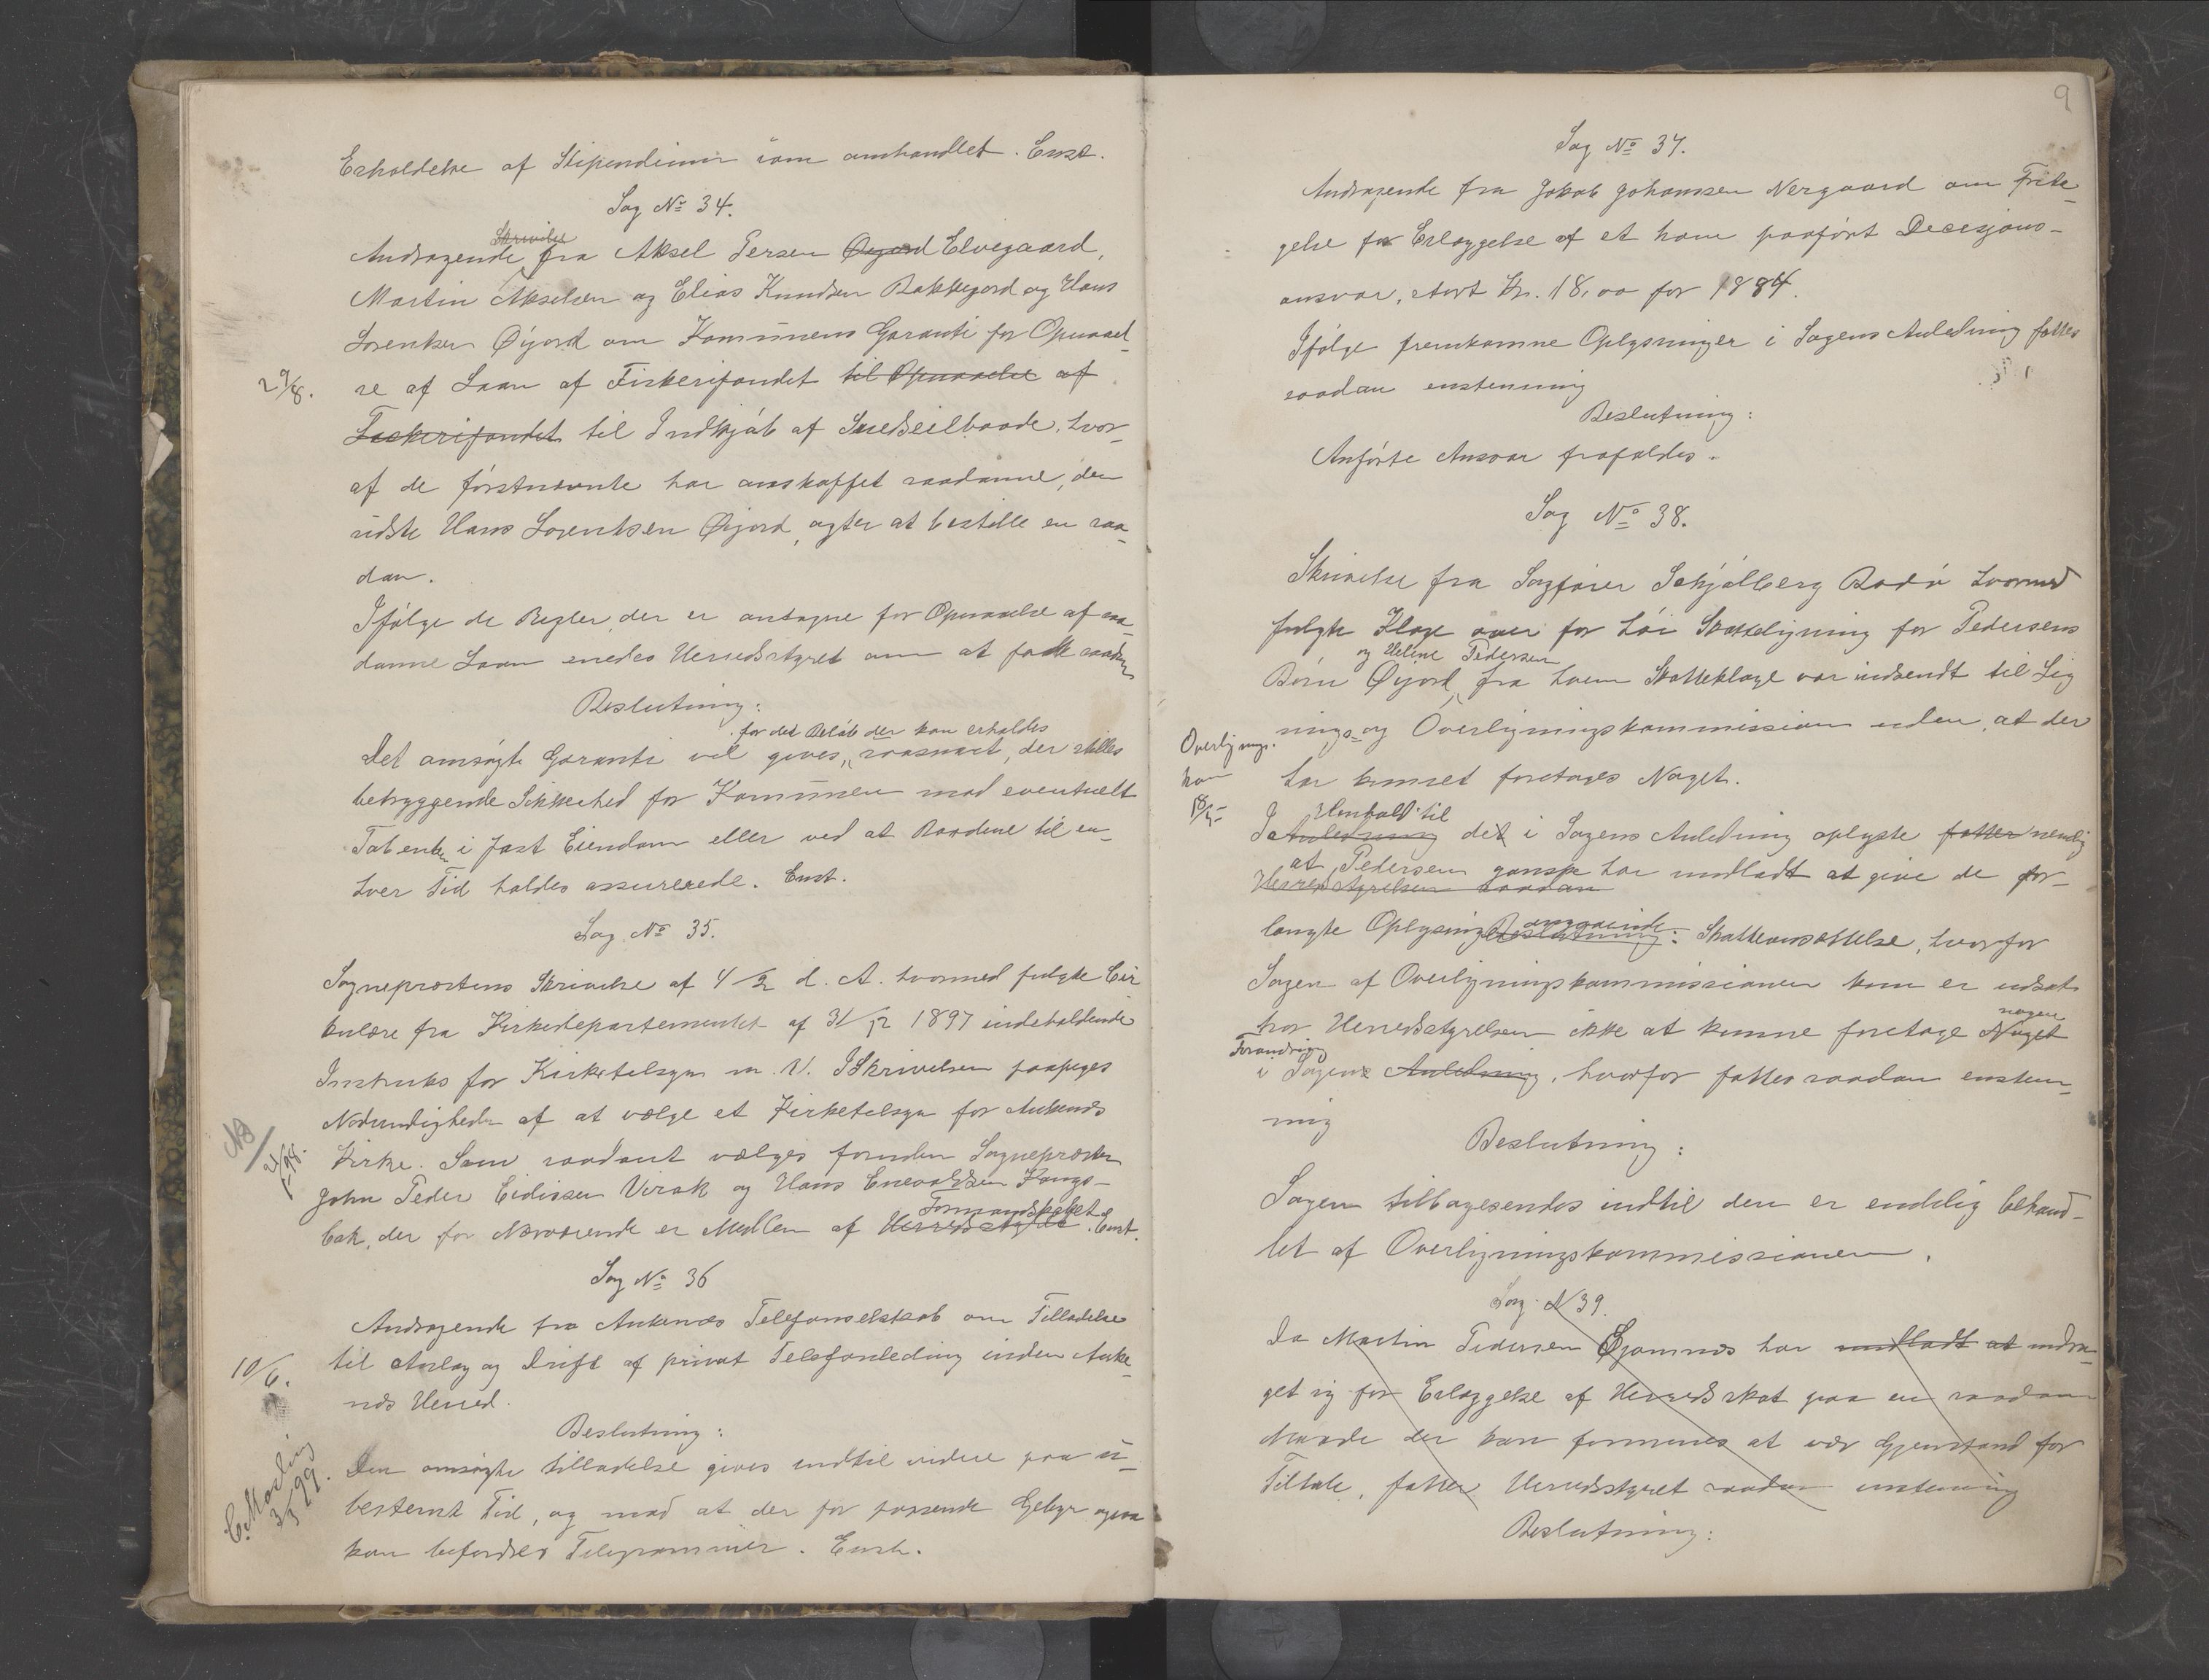 Erholdelse af Stipendium som omhandlet. Enst.
Sag No 34.
Skrivelse
Andragende fra Aksel Persen Øyord Elvegaard,
Martin Akselsen og Elias Knudsen Bakkejord og Hans
Lorentsen Øijord om Komunens Garanti for Opnaael-
29/8.
se af Laan af Fiskerifondet til Opnaaelse af
Fiskerifondet til Indkjøb af Snedseilbaade, hvor-
af de førstnævnte har anskaffet saadanne, den
sidste Hans Lorentsen Øijord, agter at bestille en saa-
dan.
Ifølge de Regler, der er antagne for Opnaaelse af saa-
danne Laan enedes Herredsstyret om at fatte saadan
Beslutning:
for det Beløb der kan erholdes
Det ansøgte Garanti vil gives, saasnart, der stilles
betryggende Sikkerhed for Komunen mod eventuelt
Tab enten i fast Eiendom eller ved at Baadene til en-
hver Tid holdes assurerede. Enst.
Sag No 35.
Sogneprestens Skrivelse af 4/2 d. A. hvormed fulgte Cir
kulære fra Kirkedepartementet af 31/12 1897 indeholdende
Instruks for Kirketilsyn m. V. I Skrivelsen paapeges
Nødvendigheden af at vælge et Kirketilsyn for Ankenes
NB
21/1-98.
Kirke. Som saadant vælges foruden Sognepresten
John Peder Eidissen Virak og Hans Enevoldsen Kongs-
Formandskabet
bak, der for Nærværende er Medlem af Herredsstyret. Enst.
Sag No 36
Andragende fra Ankenes Telefonselskab om Tilladelse
10/6.
til Anlæg og Drift af privat Telefonledning inden Anke-
næs Herred.
Beslutning:
Den ansøgte tilladelse gives indtil videre paa u-
C. Mosling
3/5 99.
bestemt Tid, og mod at der for passende Gebyr ogsaa
kan befordres Telegrammer. Enst.
9
Sag No 37.
Andragende fra Jakob Johansen Nergaard om Frita-
gelse for Erlæggelse af et ham paaført Decisjons-
ansvar, stort Kr. 18,00 for 1884.
Ifølge fremkomne Oplysninger i Sagens Anledning fattes
saadan enstemmig
Beslutning:
Anførte Ansvar frafaldes.
Sag No 38.
Skrivelse fra Sagfører Schjølberg Bodø hvormed
fulgte Klage over for høi Skatteligning for Pedersens
og Heline Pedersen
Børn Øyjord, fra hvem Skatteklage var indsendt til Lig
Overlignings.
nings- og Overligningskommission uden, at der
kom
har kunnet foretages Noget.
18/5-
Henhold til
I Anledning det i Sagens Anledning oplyste fatter nemlig
at Pedersen ganske har undladt at give de for-
Herredsstyrelsen saadan
angaaende
langte Oplysning Beslutning: Skatteansættelse, hvorfor
Sagen af Overligningskommissionen kun er udsat
nogen
har Herredsstyrelsen ikke at kunne foretage Noget
Forandring
i Sagens Anledning, hvorfor fattes saadan enstem-
mig
Beslutning:
Sagen tilbagesendes indtil den er endelig behand-
let af Overligningskommissionen.
Sag N 39.
Da Martin Pedersen Gjømnes har undladt at unddra-
get sig for Erlæggelse af Herredsskat paa en saadan
Maade der kan formenes at vær Gjenstand for
Tiltale, fatter Herredsstyret saadan enstemmig
Beslutning: